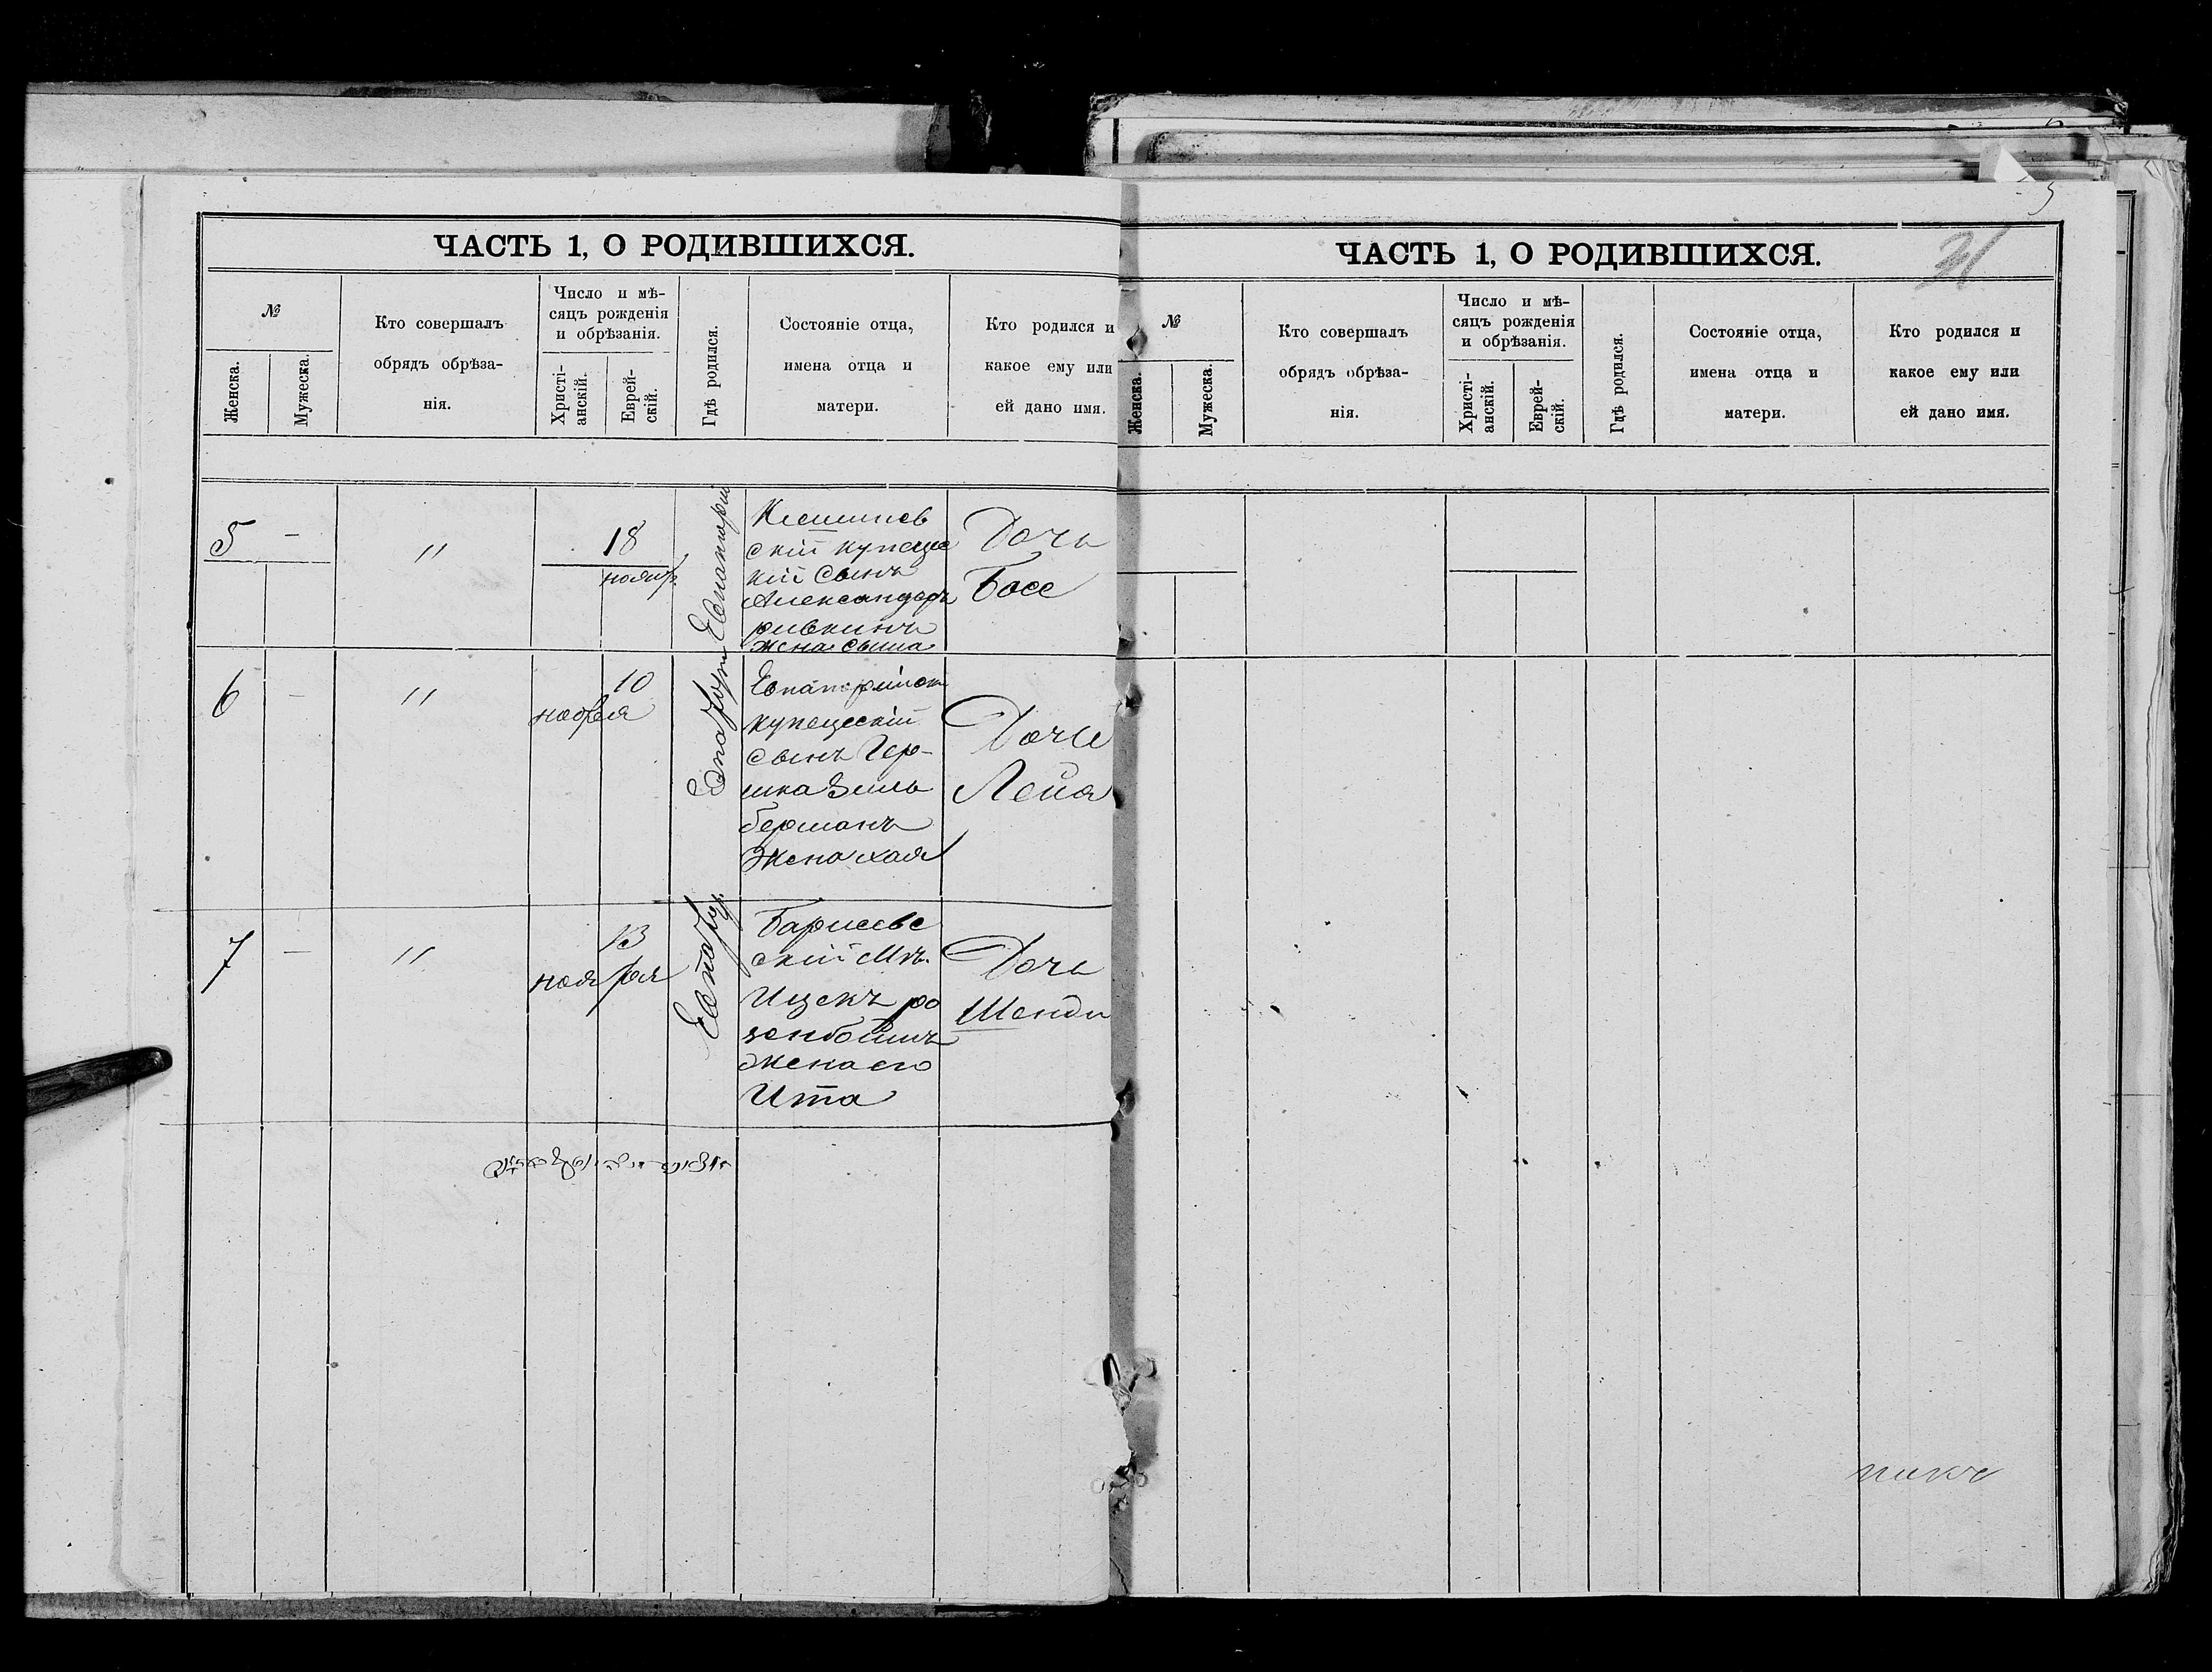 ЧАСТЬ 1, О РОДИВШИХСЯ.
№
Женска.
Мужеска.
Кто совершалъ
обрядъ обрѣза-
нія.
Число и мѣ-
сяцъ рожденія
и обрѣзанія.
Христі-
анскій.
Еврей-
скій.
Гдѣ родился.
Состояніе отца,
имена отца и
матери.
Кто родился и
какое ему или
ей дано имя.
5 — "
18
ноября
Евпаторіи
скій купече
кій сынъ
Александръ
ривкинъ
жена сыма
Дочь
Басе
6 — "
10
ноября
Евпатор
Евпаторійск
купеческій
сынъ Гер-
шка Зиль
берманъ
Жена хая
Дочь
Лейа
7 — "
13
ноября
Евпатор
Барисевс
скій Мѣ.
Ицекъ ро
зенбоимъ
жена его
Ита
Дочь
Шенди
ЧАСТЬ 1, О РОДИВШИХСЯ.
31
№
Женска.
Мужеска.
Кто совершалъ
обрядъ обрѣза-
нія.
Число и мѣ-
сяцъ рожденія
и обрѣзанія.
Христі-
анскій.
Еврей-
скій.
Гдѣ родился.
Состояніе отца,
имена отца и
матери.
Кто родился и
какое ему или
ей дано имя.